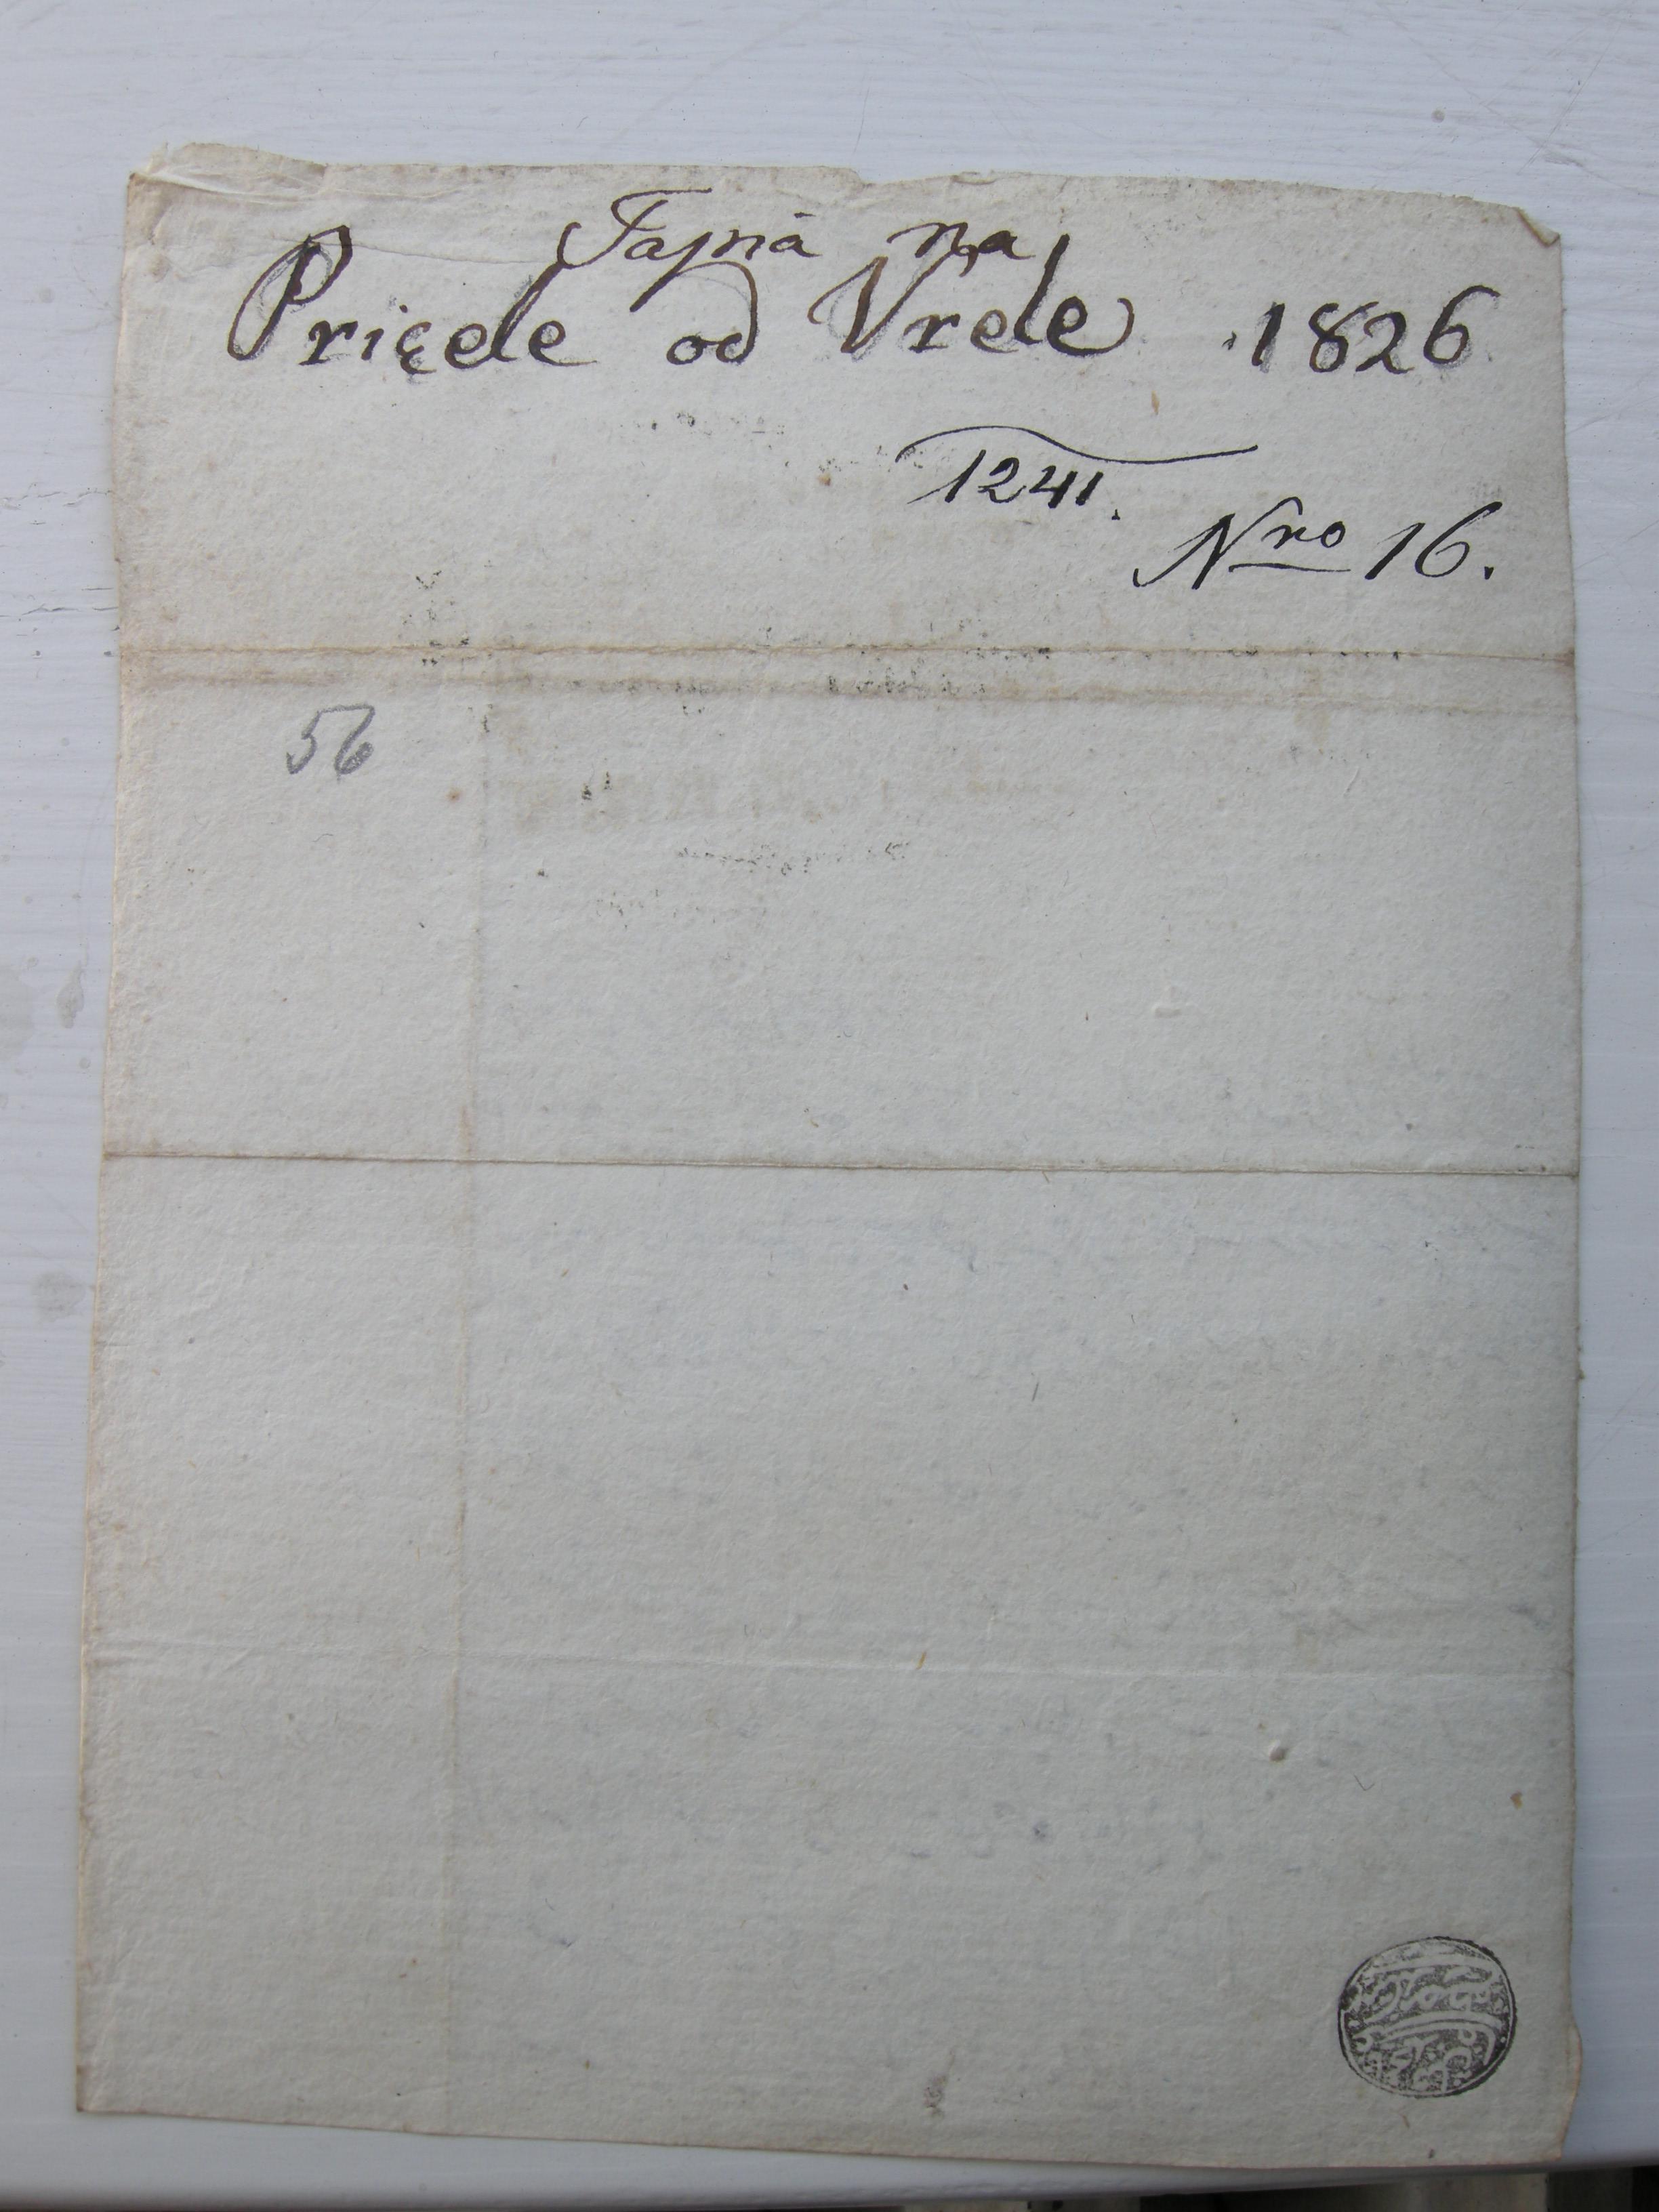 Tapià na
Pricele od Vrele 1826
1241.
Nro 16.
56